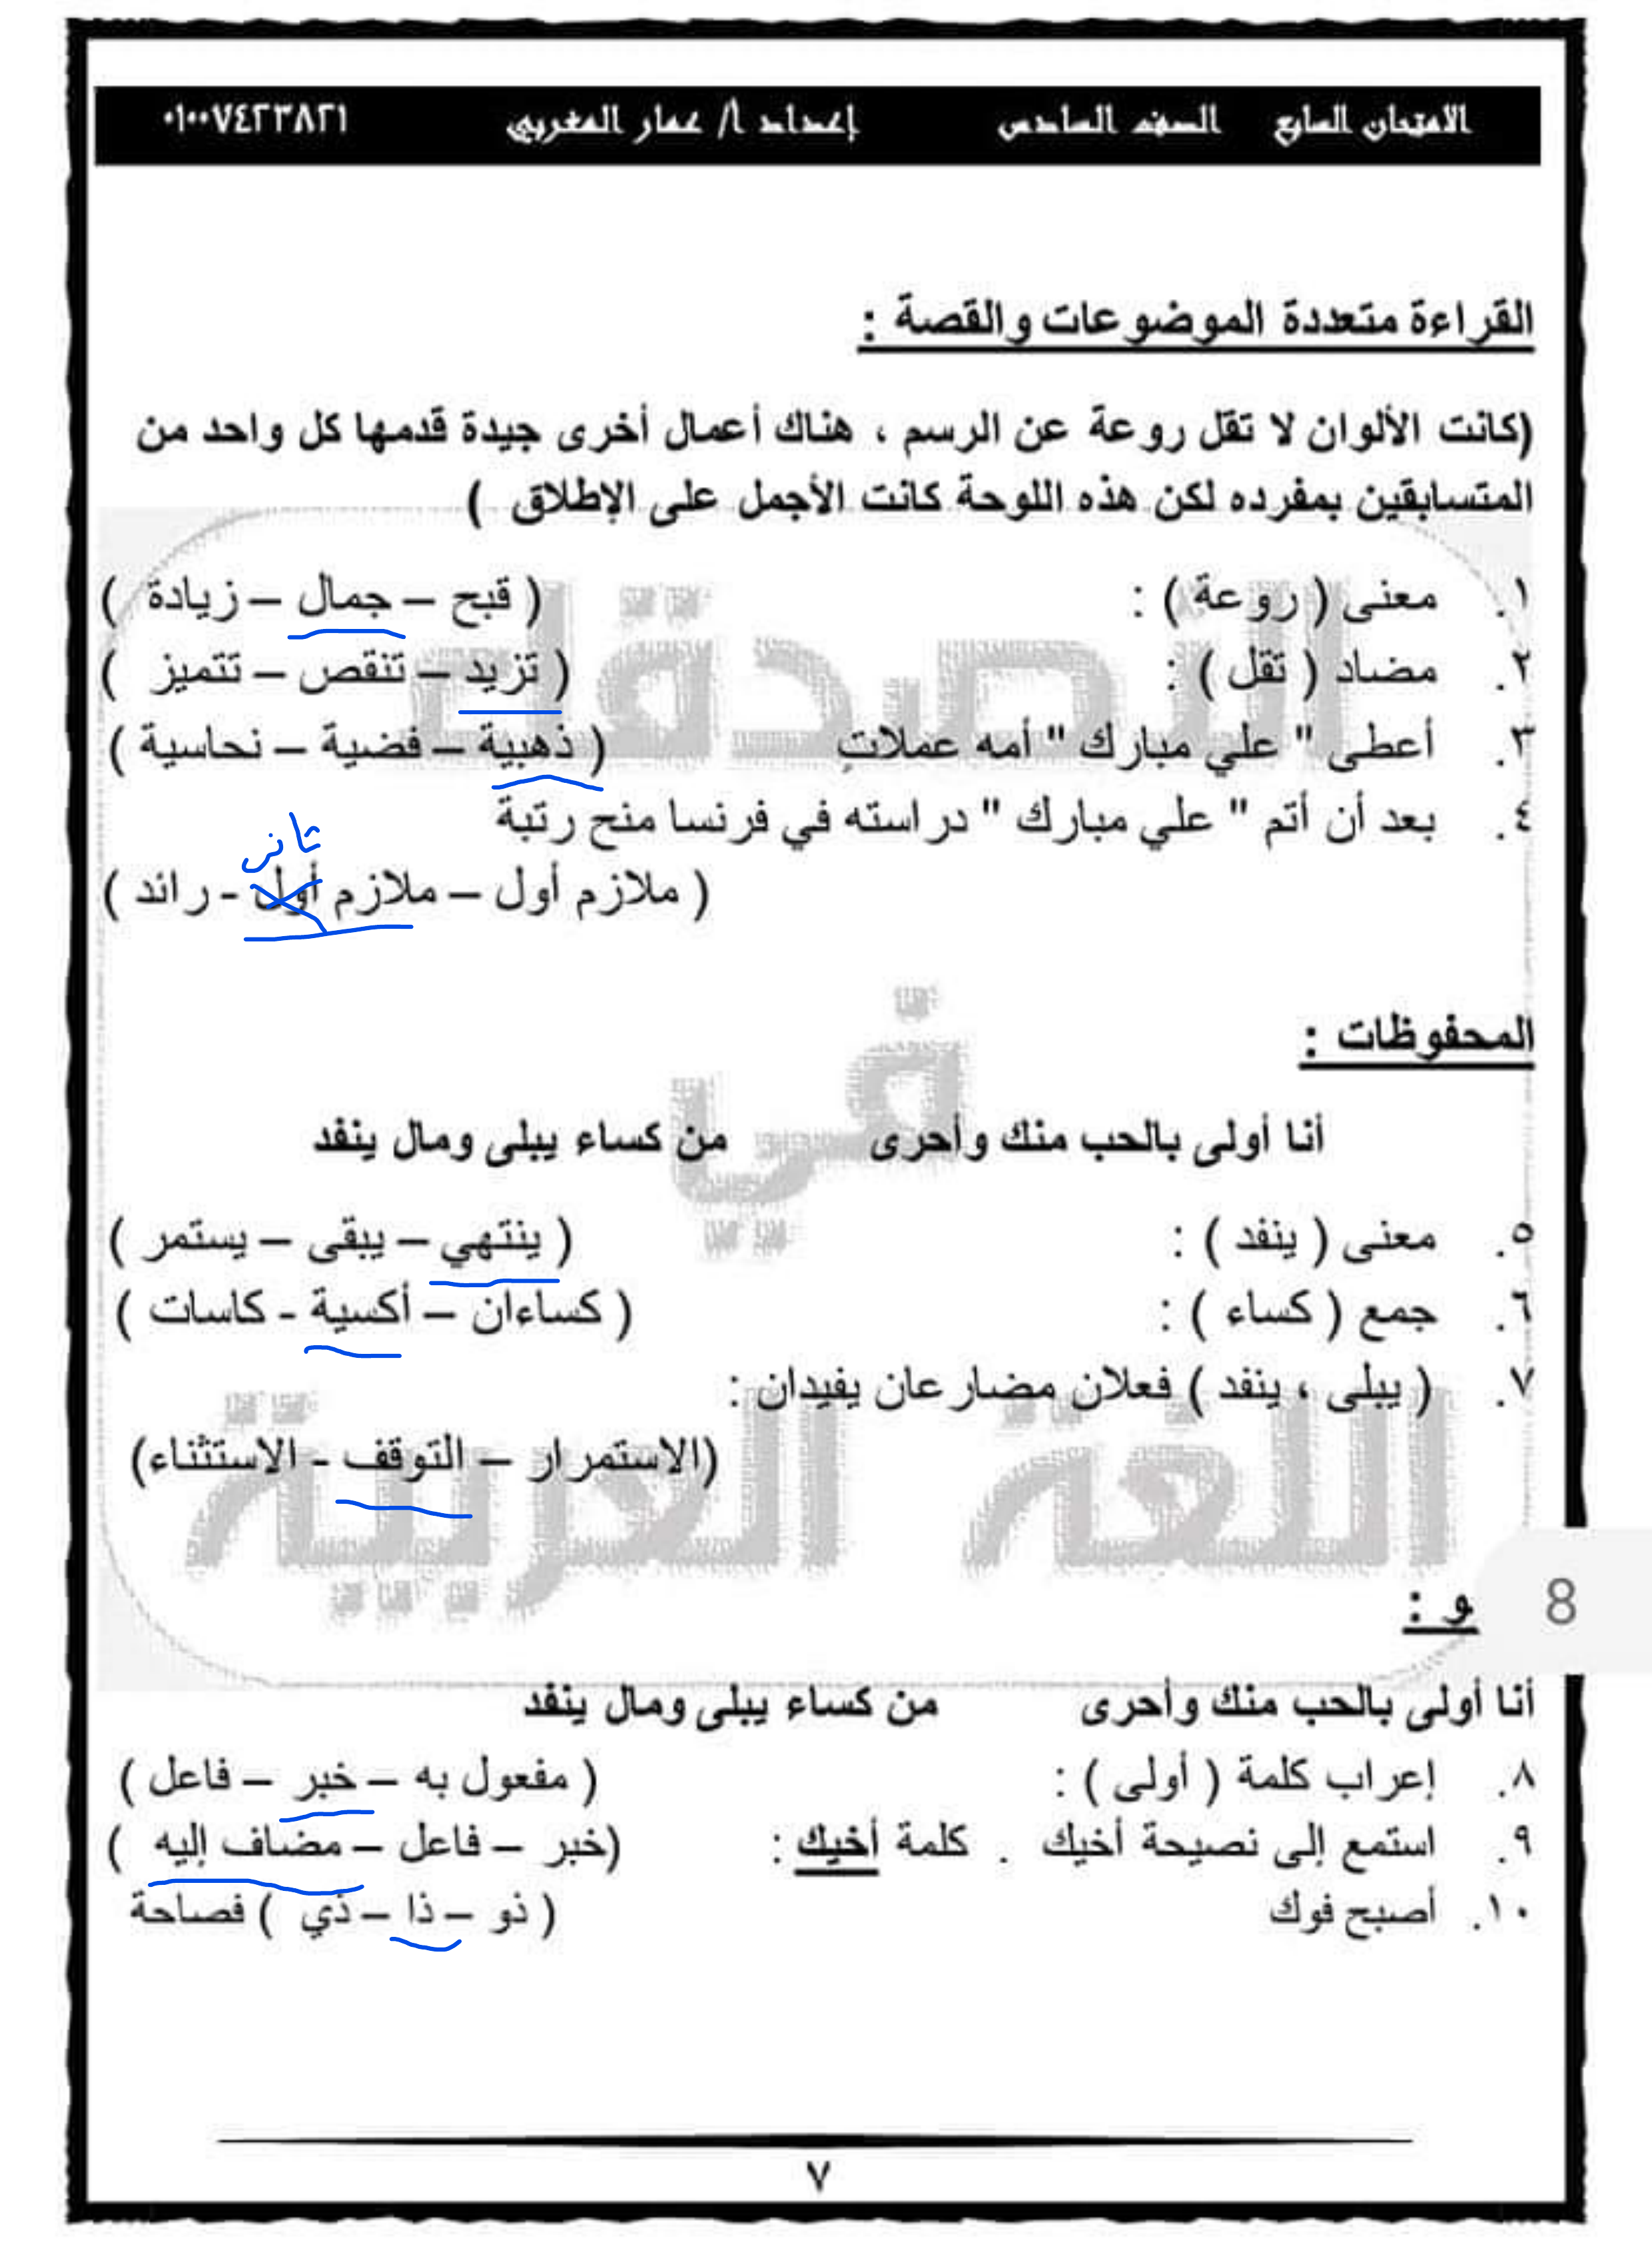 الامتحان السابع الصف السادس إعداد أ/ عمار المغربي ٠١٠٠٧٤٢٣٨٢١
القراءة متعددة الموضوعات والقصة :
(كانت الألوان لا تقل روعة عن الرسم ، هناك أعمال أخرى جيدة قدمها كل واحد من
المتسابقين بمفرده لكن هذه اللوحة كانت الأجمل على الإطلاق )
١. معنى ( روعة ) : ( قبح – جمال – زيادة )
٢. مضاد ( تقل ) : ( تزيد – تنقص – تتميز )
٣. أعطى " علي مبارك " أمه عملاتٍ ( ذهبية – فضية – نحاسية )
٤. بعد أن أتم " علي مبارك " دراسته في فرنسا منح رتبة
ثاني
( ملازم أول – ملازم أول - رائد )
المحفوظات :
أنا أولى بالحب منك وأحرى من كساء يبلى ومال ينفد
٥. معنى ( ينفد ) : ( ينتهي – يبقى – يستمر )
٦. جمع ( كساء ) : ( كساءان – أكسية - كاسات )
٧. ( يبلى ، ينفد ) فعلان مضارعان يفيدان :
(الاستمرار – التوقف - الاستثناء)
و : 8
أنا أولى بالحب منك وأحرى من كساء يبلى ومال ينفد
٨. إعراب كلمة ( أولى ) : ( مفعول به – خبر – فاعل )
٩. استمع إلى نصيحة أخيك . كلمة أخيك : (خبر – فاعل – مضاف إليه )
١٠. أصبح فوك ( ذو – ذا – ذي ) فصاحة
٧
في
اللغة العربية